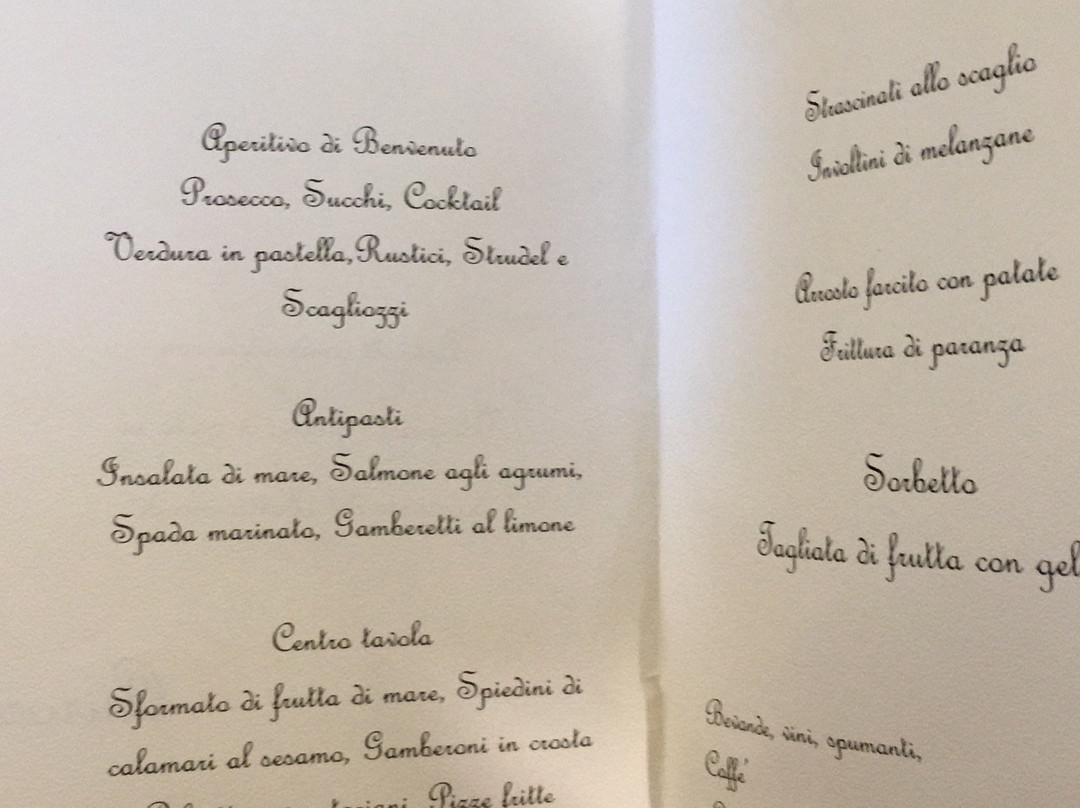 Aperitivo di Benvenuto
Prosecco, Succhi, Cocktail
Verdura in pastella, Rustici, Strudel e
Scagliozzi
Antipasti
Insalata di mare, Salmone agli agrumi,
Spada marinato, Gamberetti al limone
Centro tavola
Sformato di frutta di mare, Spiedini di
calamari al sesamo, Gamberoni in crosta
Pizze fritte
Strascinati allo scaglio
Involtini di melanzane
Arrosto farcito con patate
Frittura di paranza
Sorbetto
Tagliata di frutta con gel
Bevande, vini, spumanti,
Caffé